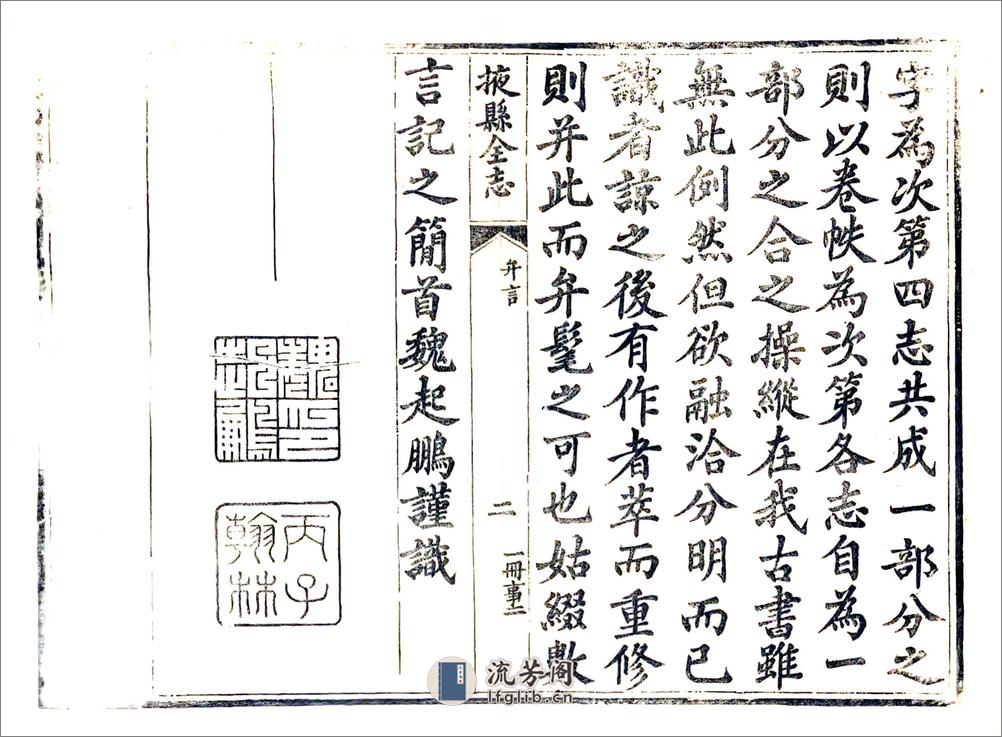 字為次第四志共成一部分之
則以卷帙為次第各志自為一
部分之合之操縱在我古書雖
無此例然但欲融洽分明而已
識者諒之後有作者萃而重修
則并此而弁髦之可也姑綴數
掖縣全志
弁言
二
一冊事二
言記之簡首魏起鵬謹識
魏起鵬印
丙子翰林
流芳阁
lfglib.cn